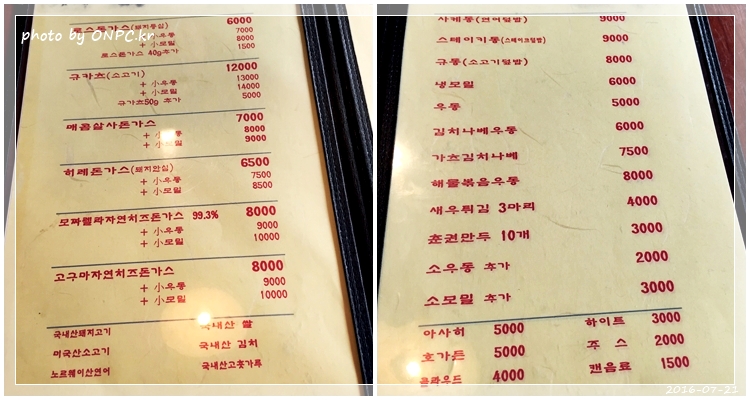 photo by ONPC.kr
로스돈가스(돼지등심) 6000
+ 小우동 7000
+ 小모밀 8000
로스돈가스 40g추가 1500
규카츠(소고기) 12000
+ 小우동 13000
+ 小모밀 14000
규가츠50g 추가 5000
매콤살사돈가스 7000
+ 小우동 8000
+ 小모밀 9000
히레돈가스(돼지안심) 6500
+ 小우동 7500
+ 小모밀 8500
모짜렐라자연치즈돈가스 99.3% 8000
+ 小우동 9000
+ 小모밀 10000
고구마자연치즈돈가스 8000
+ 小우동 9000
+ 小모밀 10000
국내산돼지고기 국내산 쌀
미국산소고기 국내산 김치
노르웨이산연어 국내산고춧가루
사케동(연어덮밥) 9000
스테이키동(스테이크덮밥) 9000
규동(소고기덮밥) 8000
냉모밀 6000
우동 5000
김치나베우동 6000
가츠김치나베 7500
해물볶음우동 8000
새우튀김 3마리 4000
춘권만두 10개 3000
소우동 추가 2000
소모밀 추가 3000
아사히 5000 하이트 3000
호가든 5000 주 스 2000
클라우드 4000 캔음료 1500
2016-07-21